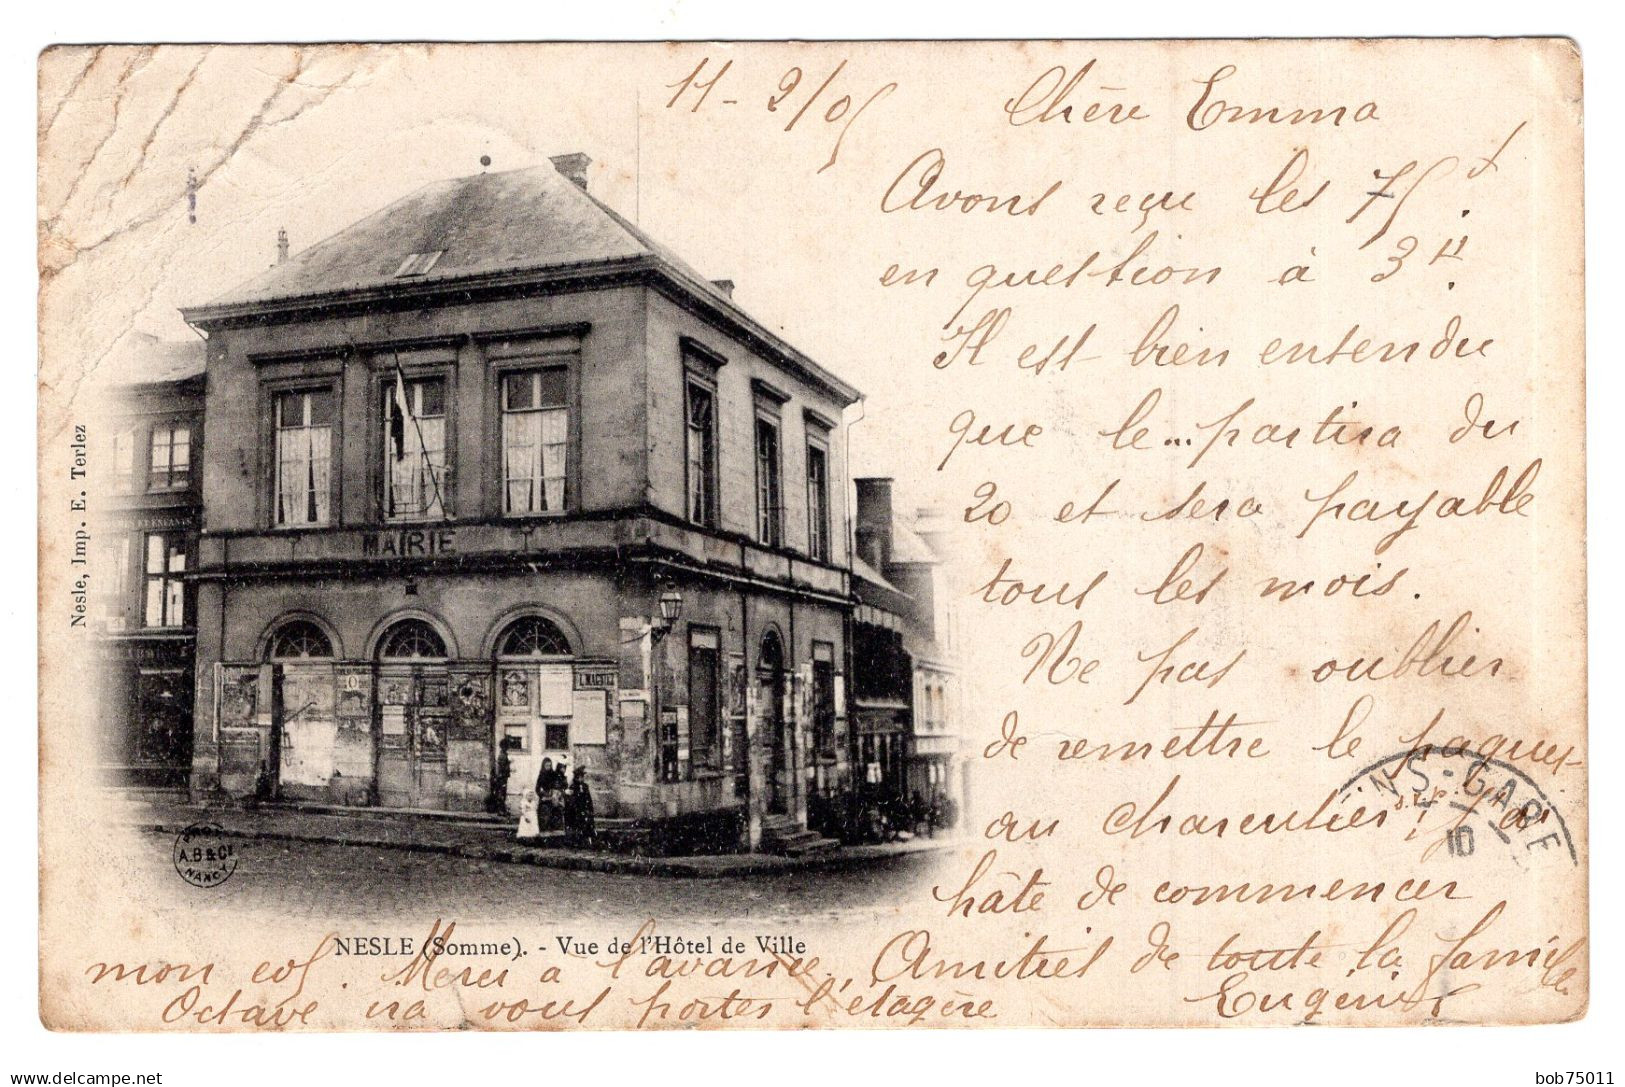 11 - 2/05
Chère Emma
Avons reçu les 75 f.
en question à 3 H.
Il est bien entendu
que le... partira du
20 et sera payable
tous les mois.
Ne pas oublier
de remettre le paquet
au charcutier s.v.p. ! J'ai
hâte de commencer
mon col. Merci à l'avance. Amitiés de toute la famille
Octave ira vous porter l'étagère Eugénie
NESLE (Somme). - Vue de l'Hôtel de Ville
Nesle, Imp. E. Terlez
MAIRIE
A.B & Cie
NANCY
NS-GARE
10
delcampe.net
bob75011